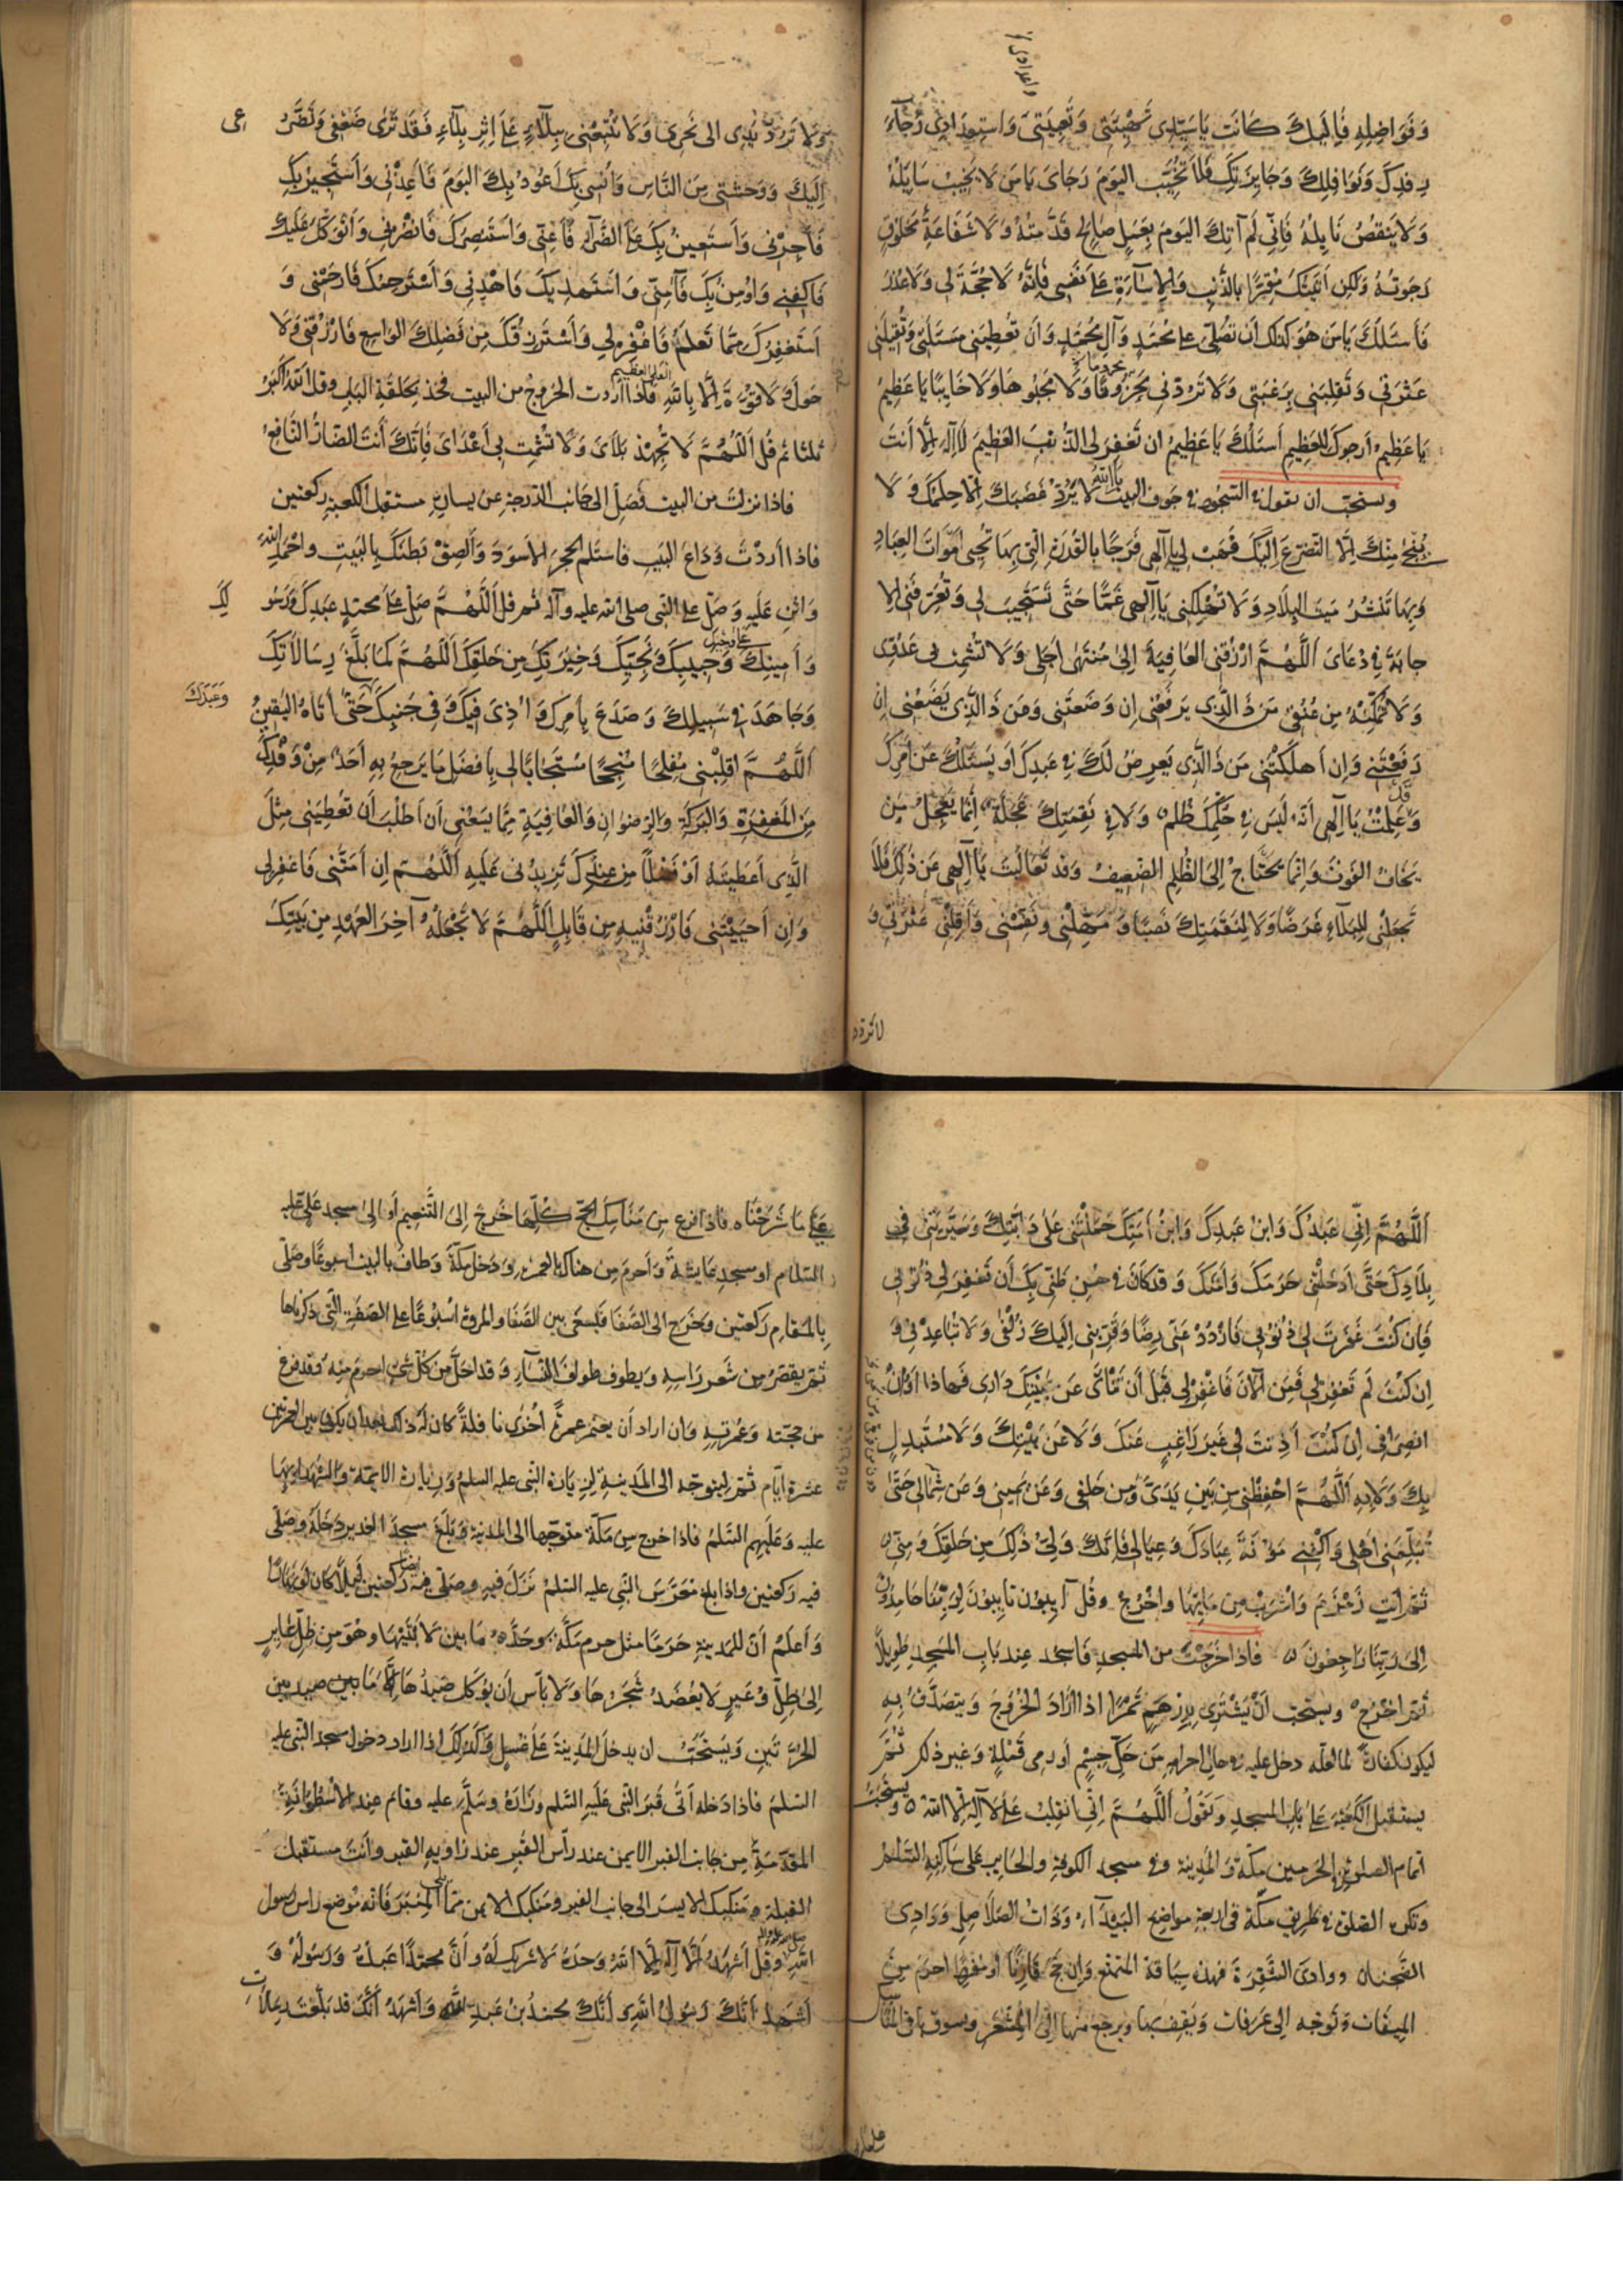 وَفَوَاضِلِهِ فَإِلَيكَ كَانَت يَا سَيِّدِي تَهْيِئَتِي وَتَعْبِئَتِي وَاستِعدَادِي رَجَآءَ
رِفدِكَ وَنَوَافِلِكَ وَجَايِزَتِكَ فَلَا تُخَيِّب اليَومَ رَجَاىَ يَا مَن لَا يَخِيبُ سَايِلُهُ
وَلَا يَنقُصُ نَايِلُهُ فَإِنِّي لَم آتِكَ اليَومَ بِعَمَلٍ صَالِحٍ قَدَّمتُهُ وَلَا شَفَاعَةِ مَخلُوقٍ
رَجَوتُهُ وَلَكِن أَتَيتُكَ مُقِرًّا بِالذَّنبِ وَالإِسَآءَةِ عَلَى نَفسِي فَإِنَّهُ لَا حُجَّةَ لِي وَلَا عُذرَ
فَأَسئَلُكَ يَا مَن هُوَ كذلك أَن تُصَلِّيَ عَلى مُحَمَّدٍ وَآلِ مُحَمَّدٍ وَأَن تُعطِيَنِي مَسئَلَتِي وَتُقِيلَنِي
عَثْرَتِي وَتَقلِبَنِي بِرَغبَتِي وَلَا تَرُدَّنِي مَحرُومًا وَلَا مَجبُوهًا وَلَا خَايِبًا يَا عَظِيمُ
يَا عَظِيمُ أَرجُوكَ لِلعَظِيمِ أَسئَلُكَ يَا عَظِيمُ ان تَغفِرَ لِي الذَّنبَ العَظِيمَ لَا إِلَهَ إِلَّا أَنتَ
ويستحبّ ان يقول في السّجود في جوف البيت لَا يَرُدُّ غَضَبَكَ إِلَّا حِلمُكَ وَلَا
يُنجِي مِنكَ إِلَّا التَّضَرُّعُ إِلَيكَ فَهَب لِي يَا إلهي فَرَجًا بِالقُدرَةِ الَّتِي بِهَا تُحيِي أَموَاتَ العِبَادِ
وَبِهَا تَنشُرُ مَيتَ البِلَادِ وَلَا تُهلِكنِي يَا إِلَهِي غَمًّا حَتَّى تَستَجِيبَ لِي وَتُعَرِّفَنِي الا
جابَةَ فِي دُعَاىَ اللَّهُمَّ ارْزُقنِي العَافِيَةَ إِلَى مُنتَهَى أَجَلِي وَلَا تُشمِت بِي عَدُوِّي
وَلَا تُمَكِّنهُ مِن عُنُقِي مَن ذَا الَّذِي يَرفَعُنِي إِن وَضَعتَنِي وَمَن ذَا الَّذِي يَضَعُنِي إِن
رَفَعْتَنِي وَإِن أَهلَكْتَنِي مَن ذَا الَّذِي يَعرِضُ لَكَ فِي عَبدِكَ أَو يَسئَلُكَ عَن أَمرِكَ
وَقَد عَلِمْتُ يَا إلهي أَنَّهُ لَيسَ فِي حُكمِكَ ظُلمٌ وَلَا فِي نَقِمَتِكَ عَجَلَةٌ إِنَّمَا يَعجَلُ مَن
يَخَافُ الفَوتَ وَإِنَّمَا يَحتَاجُ إِلَى الظُّلمِ الضَّعِيفُ وَقَد تَعَالَيتَ يَا إِلَهِي عَن ذَلِكَ فَلَا
تَجعَلنِي لِلبَلَآءِ غَرَضًا وَلَا لِنَقِمَتِكَ نَصَبًا وَمَهِّلْنِي وَنَفِّسنِي وَأَقِلْنِي عَثْرَتِي وَ
لا تردد
وَلَا تَرُدَّ يَدِي الى نَحرِي وَلَا تُتبِعْنِي بِبَلَآءٍ عَلَى إِثرِ بَلَآءٍ فَقَد تَرَى ضَعْفِي وَتَضَرُّ
عى
إِلَيكَ وَوَحشَتِي مِنَ النَّاسِ وَأُنسِي بِكَ أَعُوذُ بِكَ اليَومَ فَأَعِذْنِي وَأَستَجِيرُ بِكَ
فَأَجِرْنِي وَأَستَعِينُ بِكَ عَلَى الضَّرَّآءِ فَأَعِنِّي وَأَستَنصِرُكَ فَانصُرْنِي وَأَتَوَكَّلُ عَلَيكَ
فَاكفِنِي وَأُومِنُ بِكَ فَآمِنِّي وَأَستَهدِيكَ فَاهْدِنِي وَأَسْتَرحِمُكَ فَارحَمْنِي وَ
أَستَغفِرُكَ مِمَّا تَعلَمُ فَاغْفِر لِي وَأَسْتَرزِقُكَ مِن فَضلِكَ الوَاسِعِ فَارزُقنِي وَلَا
حَولَ وَلَا قُوَّةَ إِلَّا بِاللَّهِ العلي العظيم فاذا أردت الخروج من البيت فخذ بحلقة الباب وقل اللَّهُ أكبَرُ
ثلثا ثم قُل اللَّهُمَّ لَا تُجهِد بَلَاىَ وَلَا تُشمِت بِي أَعْدَاىَ فَإِنَّكَ أَنتَ الضَّارُّ النَّافِعُ
فاذا نزلت من البيت فَصَلِّ الى جانب الدّرجة عن يسارك مستقبل الكعبة ركعتين
فاذا أردْتَ وَدَاعَ البَيتِ فاستلم الحجر الأسوَدَ وَأَلصِقْ بَطنَكَ بِالبَيتِ واحْمَدِ اللَّهَ
وَاثنِ عَلَيهِ وَصَلِّ على النّبى صلى اللّه عليه وآله ثم قل اللَّهُمَّ صَلِّ عَلَى محمّدٍ عَبدِكَ وَرَسُو
لِكَ
وَأَمِينِكَ وَحَبِيبِكَ وَنَجِيِّكَ وَخِيَرَتِكَ مِن خَلقِكَ اللَّهُمَّ كَمَا بَلَّغَ رِسَالَاتِكَ
وَجَاهَدَ فِي سَبِيلِكَ وَصَدَعَ بِأَمرِكَ وَأُذِىَ فِيكَ وَفِي جَنبِكَ حَتَّى أَتَاهُ اليَقِينُ
وَعَبَدَكَ
اللَّهُمَّ اقلِبْنِي مُفلِحًا مُنجِحًا مُستَجَابًا لِي بِأَفضَلِ مَا يَرجِعُ بِهِ أَحَدٌ مِنْ وَفْدِكَ
مِنَ المَغفِرَةِ وَالبَرَكَةِ وَالرِّضوَانِ وَالعَافِيَةِ مِمَّا يَسَعُنِي أَن أَطلُبَ أَن تُعطِيَنِي مِثلَ
الَّذِي أَعطَيتَهُ أَوْ فَضلًا مِن عِندِكَ تَزِيدُنِي عَلَيهِ اللَّهُمَّ إِن أَمَتَّنِي فَاغفِر لِي
وَإِن أَحيَيْتَنِي فَارزُقنِيهِ مِن قَابِلٍ اللَّهُمَّ لَا تَجْعَلْهُ آخِرَ العَهْدِ مِن بَيتِكَ
اللَّهُمَّ إِنِّي عَبدُكَ وَابنُ عَبدِكَ وَابنُ أَمَتِكَ حَمَلْتَنِي عَلَى دَآبَّتِكَ وَسَيَّرتَنِي فِي
بِلَادِكَ حَتَّى أَدخَلتَنِي حَرَمَكَ وَأَمنَكَ وَقَد كَانَ فِي حُسنِ ظَنِّي بِكَ أَن تَغفِرَ لِي ذُنُوبِي
فَإِن كُنتَ غَفَرتَ لِي ذُنُوبِي فَازدَدْ عَنِّي رِضًا وَقَرِّبنِي إِلَيكَ زُلفَى وَلَا تُبَاعِدنِي وَ
إِن كُنتَ لَم تَغفِر لِي فَمِنَ الآنَ فَاغفِر لِي قَبلَ أَن تَنْأَى عَن بَيْتِكَ دَارِي فَهَذَا أَوَانُ
انصِرَافِي إِن كُنتَ أَذِنتَ لِي غَيرَ رَاغِبٍ عَنكَ وَلَا عَن بَيْتِكَ وَلَا مُستَبدِلٍ
بِكَ وَلَا بِهِ اللَّهُمَّ احْفَظْنِي مِن بَينِ يَدَىَّ وَمِن خَلفِي وَعَن يَمِينِي وَعَن شِمَالِي حَتَّى
تُبَلِّغَنِي أَهلِي وَاكْفِنِي مَؤُنَةَ عِبَادِكَ وَعِيَالِي فَإِنَّكَ وَلِيُّ ذَلِكَ مِن خَلقِكَ وَمِنِّي
ثُمَّ ائتِ زَمْزَمَ وَاشرَبْ مِن مَايِهَا واخْرُج وقُل آيِبُونَ تَايِبُونَ لِرَبِّنَا حَامِدُونَ
إِلَى رَبِّنَا رَاجِعُونَ فاذا خَرَجْتَ من المسجد فَاسجُد عِندَ بَابِ المَسجِدِ طَوِيلًا
ثُمَّ اخْرُج ويستحب أَنْ يَشْتَرِيَ بِدِرْهَمٍ تَمْرًا اذا ارَادَ الخُرُوجَ وَيتصَدَّقُ بِهِ
ليكون كفارةً لما لعلّه دخل عليه في حال احرامه مِن حَكِّ جِسْمٍ أو رمى قَملَةٍ وَغير ذلك ثُمَّ
يستقبل الكعبة عَلَى باب المسجد وَيَقُولُ اللَّهُمَّ إِنِّي أَنقَلِبُ عَلَى لَا إِلَهَ إِلَّا اللهُ ويستحبّ
اتمام الصلوة في الحَرَمين مكّة وَالمَدِينةِ وفي مسجد الكوفة والحَايِرِ عَلَى سَاكِنِهِ السَّلامُ
وتكره الصّلوة في طريق مكّة في اربعة مواضع البَيْدَآءِ وَذَاتِ الصَّلَاصِلِ وَوَادِي
الضَّجنَان ووادى الشّقِرَة فَهذِه سِيَاقَة المتمتّع وَإن حَجَّ قارِنًا أو مفرِدًا احرَم مِن
الميقات وَتَوَجّه إلى عَرَفات وَيَقِف بها ويرجع منها إلى المَشْعَرِ
عَلَى مَا شَرَحْنَاه فاذا فرغ مِن مَنَاسِكِ الحَجِّ كُلِّهَا خَرَجَ إِلَى التَّنعِيمِ أَو إِلى مسجدِ عَلِيٍّ عليه
السّلام او مسجدِ عَايِشَةَ وَأحرمَ مِن هناك بالعمرة وَدَخل مكّة وَطاف بالبيت اسبوعًا وصَلّى
بِالمَقَامِ رَكعتين وخَرَج الى الصّفا فَيسعَى بين الصّفَا والمروة اسبُوعًا على الصّفةِ الّتى ذكرناها
ثمّ يقصّرُ مِن شَعرِ رَاسِهِ وَيطوف طواف النّسَآءِ وَقد احَلَّ مِن كُلّ شَيءٍ احرَم مِنهُ وَقد فرغ
من حجّته وَعُمرَتِهِ وان اراد أن يعتمر عمرةً أخْرَى نافلةً كان لَه ذلك بعد ان يكون بين العمرتين
عشرة ايّام ثمّ ليتوجّه الى المَدينةِ لِزِيَارَةِ النّبى عليه السلم وَزِيَارَة الايمّة وَالشّهدَاءِ بها
عليه وَعَلَيهِم السّلمُ فاذا خرج مِن مَكّة متوجّها الى المَدينة وَبَلَغَ مسجدَ الغدير دَخَلَهُ وصَلّى
فيه رَكعتين واذا بلغ مُعَرَّسَ النّبى عليه السّلم نَزَلَ فيه وصَلّى فيه رَكعتين لَيلًا كانَ أو نَهارًا
وَأَعلَم أنّ للمَدينةِ حَرَمًا مثل حرم مَكّة وحَدُّهُ مَا بين لَابَتَيْهَا وهُوَ مِن ظِلّ عَايِرٍ
إلى ظِلّ وُعَيرٍ لَا يُعْضَدُ شَجَرُهَا ولَا بأس أَن يُوكَل صَيدُهَا إلّا مَا بين صيد بين
الحَرّتَين وَيُستَحَبّ ان يدخل المَدِينة عَلَى غُسلٍ وَكَذَلِكَ اذا اراد دخول مسجد النّبى عليه
السّلمُ فاذا دَخله أَتَى قَبرَ النّبى عَلَيهِ السّلم وزَارَهُ وَسَلّم عليه وقام عِند الاسْطُوَانَةِ
المقدّمَةِ مِن جَانب القبر الايمن عند رَأس القَبرِ عند زاوية القبر وأنتَ مستقبل
القبلة ومَنكبك الايسر الى جانب القبر ومنكبك الايمن ممّا يلي المِنْبَر فَانّه مَوضع راس رسول
اللّهِ صلى الله عليه وآله وقل أشهَدُ أن لَا إلَهَ إلّا اللّهُ وَحدَهُ لَا شَرِيكَ لَهُ وأَنّ محمّدًا عَبدُهُ وَرَسُولُهُ وَ
أشهَدُ أَنّكَ رَسُولُ اللّهِ وأنّكَ محمّدُ بْنُ عَبدِ اللهِ وَأشْهَدُ أَنّكَ قَد بَلّغتَ رِسَالَاتِ